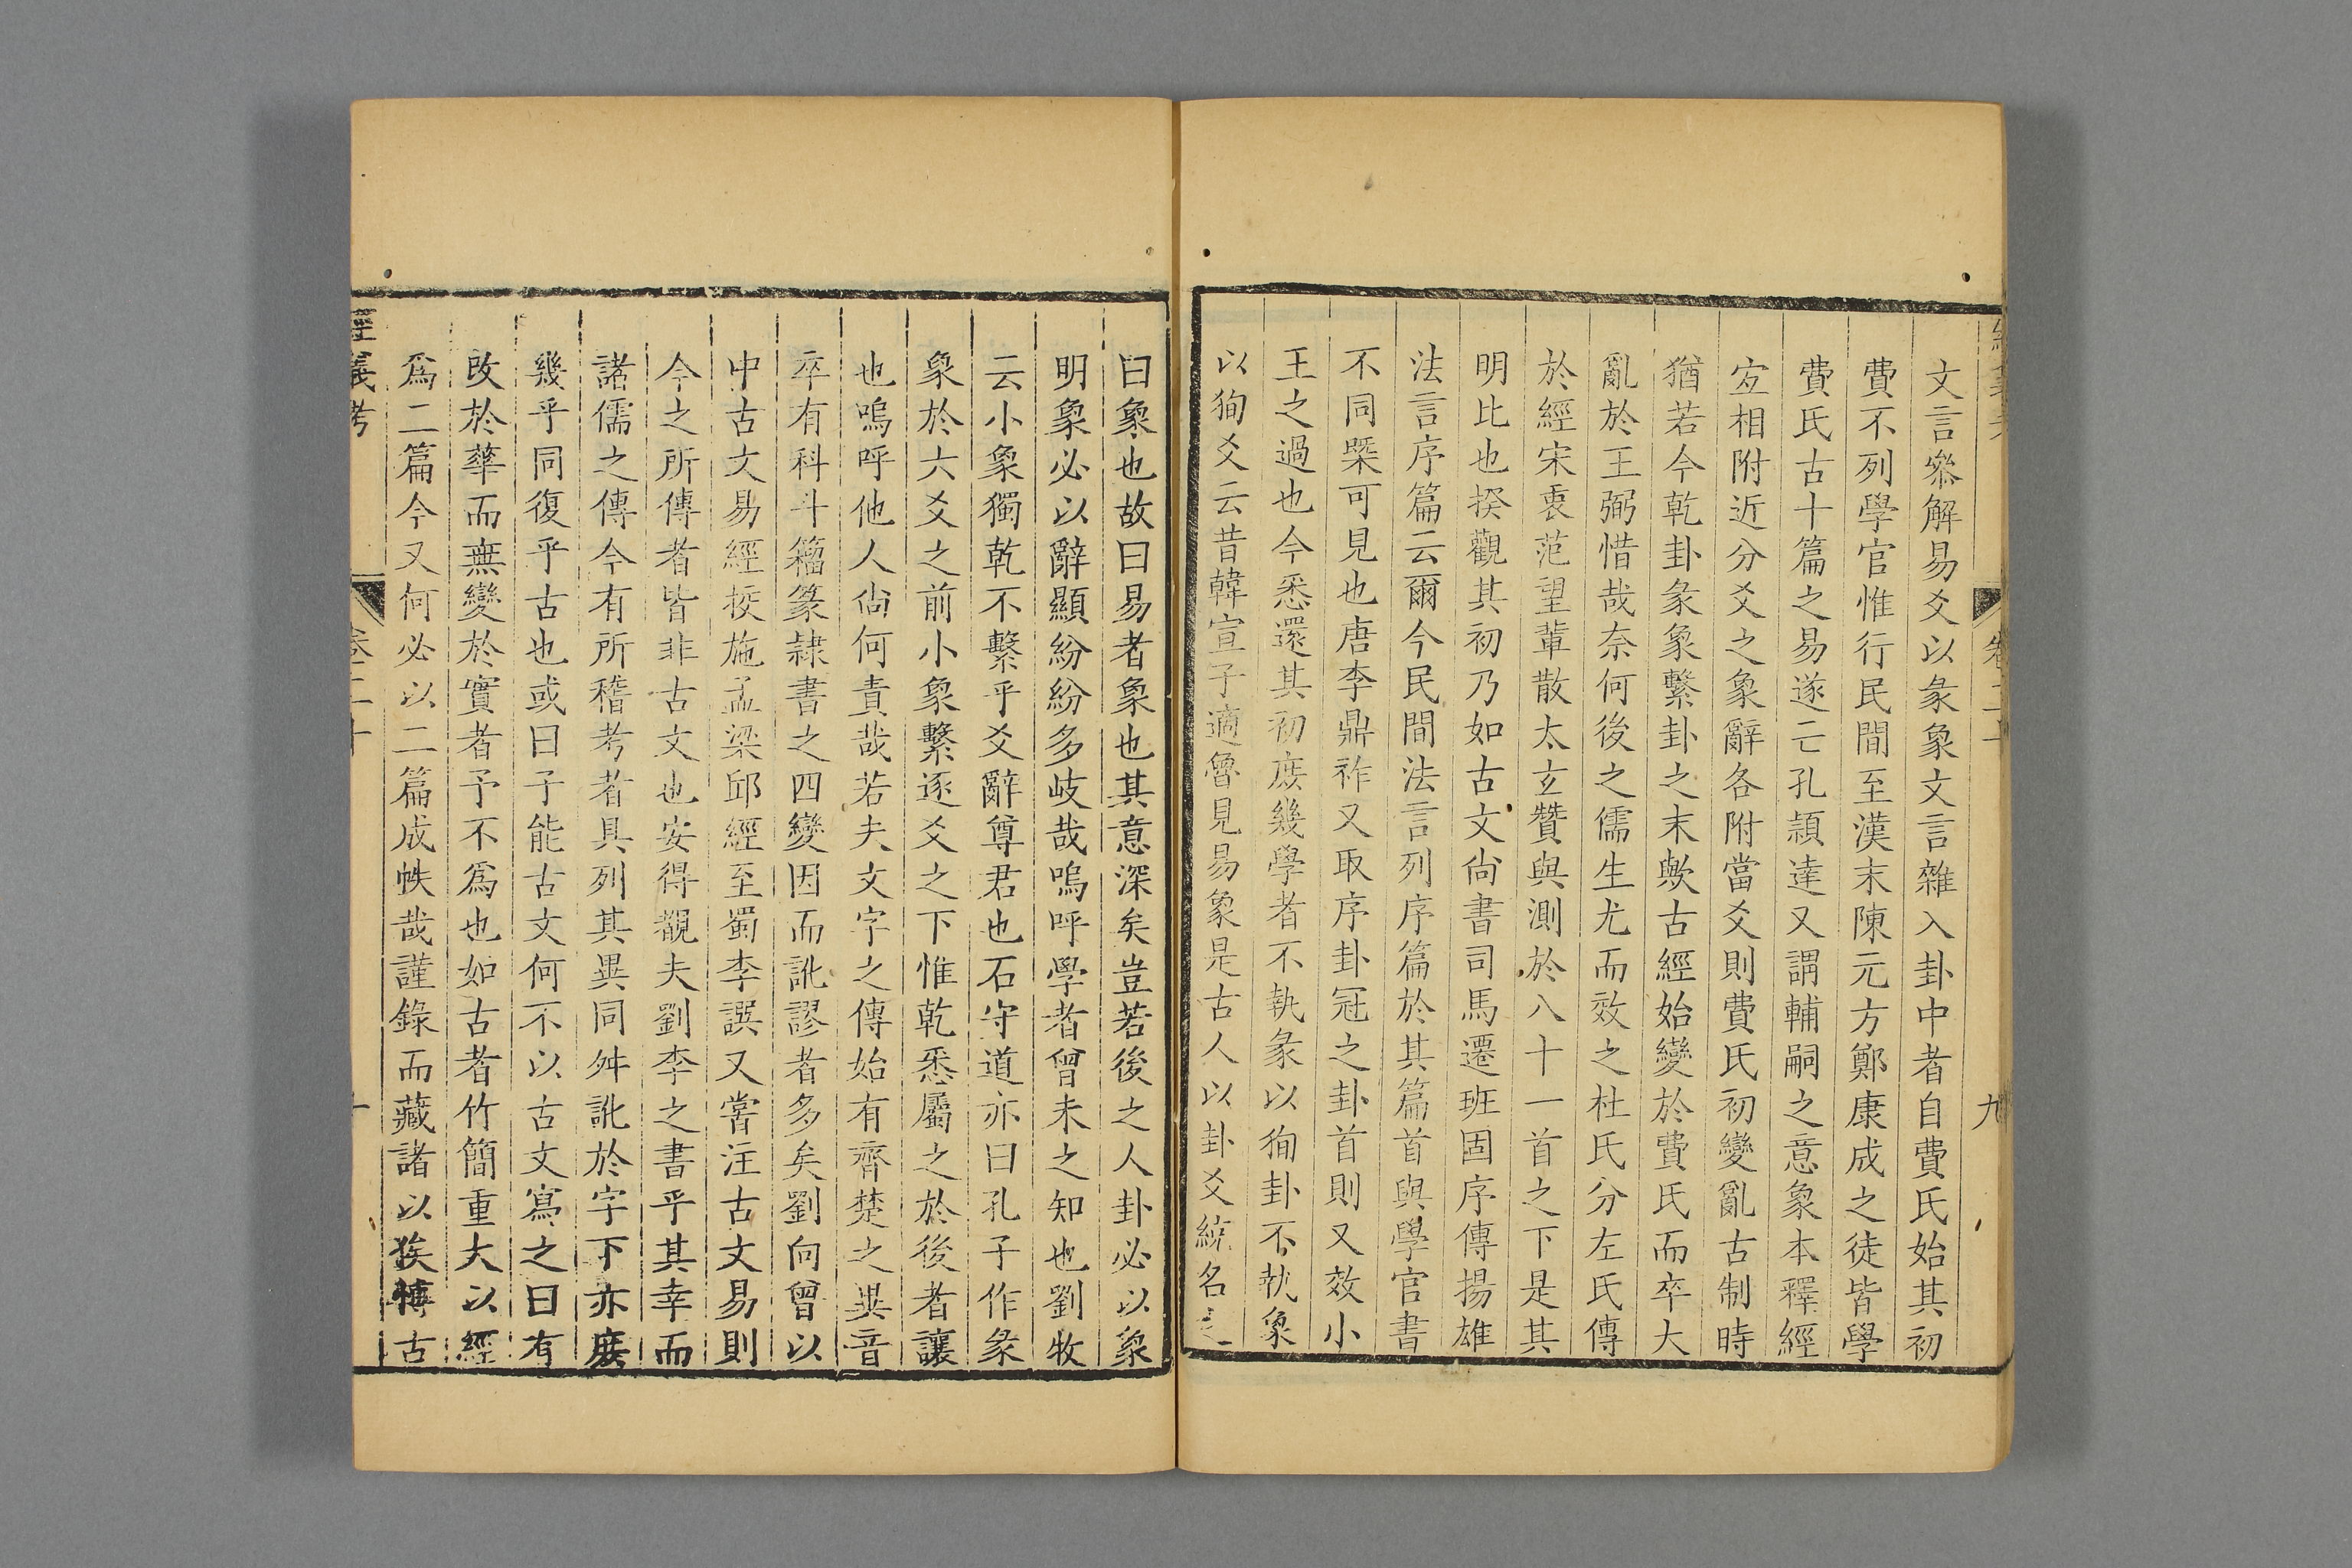 文言叅解易爻以彖象文言雜入卦中者自費氏始其初
費不列學官惟行民間至漢末陳元方鄭康成之徒皆學
費氏古十篇之易遂亡孔頴達又謂輔嗣之意象本釋經
宐相附近分爻之象辭各附當爻則費氏初變亂古制時
猶若今乾卦彖象繫卦之末歟古經始變於費氏而卒大
亂於王弼惜哉奈何後之儒生尤而效之杜氏分左氏傳
於經宋衷范望輩散太玄贊與測於八十一首之下是其
明比也揆觀其初乃如古文尙書司馬遷班固序傳揚雄
法言序篇云爾今民間法言列序篇於其篇首與學官書
不同槩可見也唐李鼎祚又取序卦冠之卦首則又效小
王之過也今悉還其初庻幾學者不執彖以狥卦不執象
以狥爻云昔韓宣子適魯見易象是古人以卦爻統名之
曰象也故曰易者象也其意深矣豈若後之人卦必以彖
明象必以辭顯紛紛多岐哉嗚呼學者曾未之知也劉牧
云小象獨乾不繫乎爻辭尊君也石守道亦曰孔子作彖
象於六爻之前小象繫逐爻之下惟乾悉屬之於後者讓
也嗚呼他人尙何責哉若夫文字之傳始有齊楚之異音
卒有科斗籀篆隸書之四變因而訛謬者多矣劉向曾以
中古文易經挍施孟梁邱經至蜀李譔又嘗注古文易則
今之所傳者皆非古文也安得覩夫劉李之書乎其幸而
諸儒之傳今有所稽考者具列其異同舛訛於字下亦庻
幾乎同復乎古也或曰子能古文何不以古文寫之曰有
攺於華而無變於實者予不爲也如古者竹簡重大以經
爲二篇今又何必以二篇成帙哉謹錄而藏諸以俟博古
經義考
卷二十